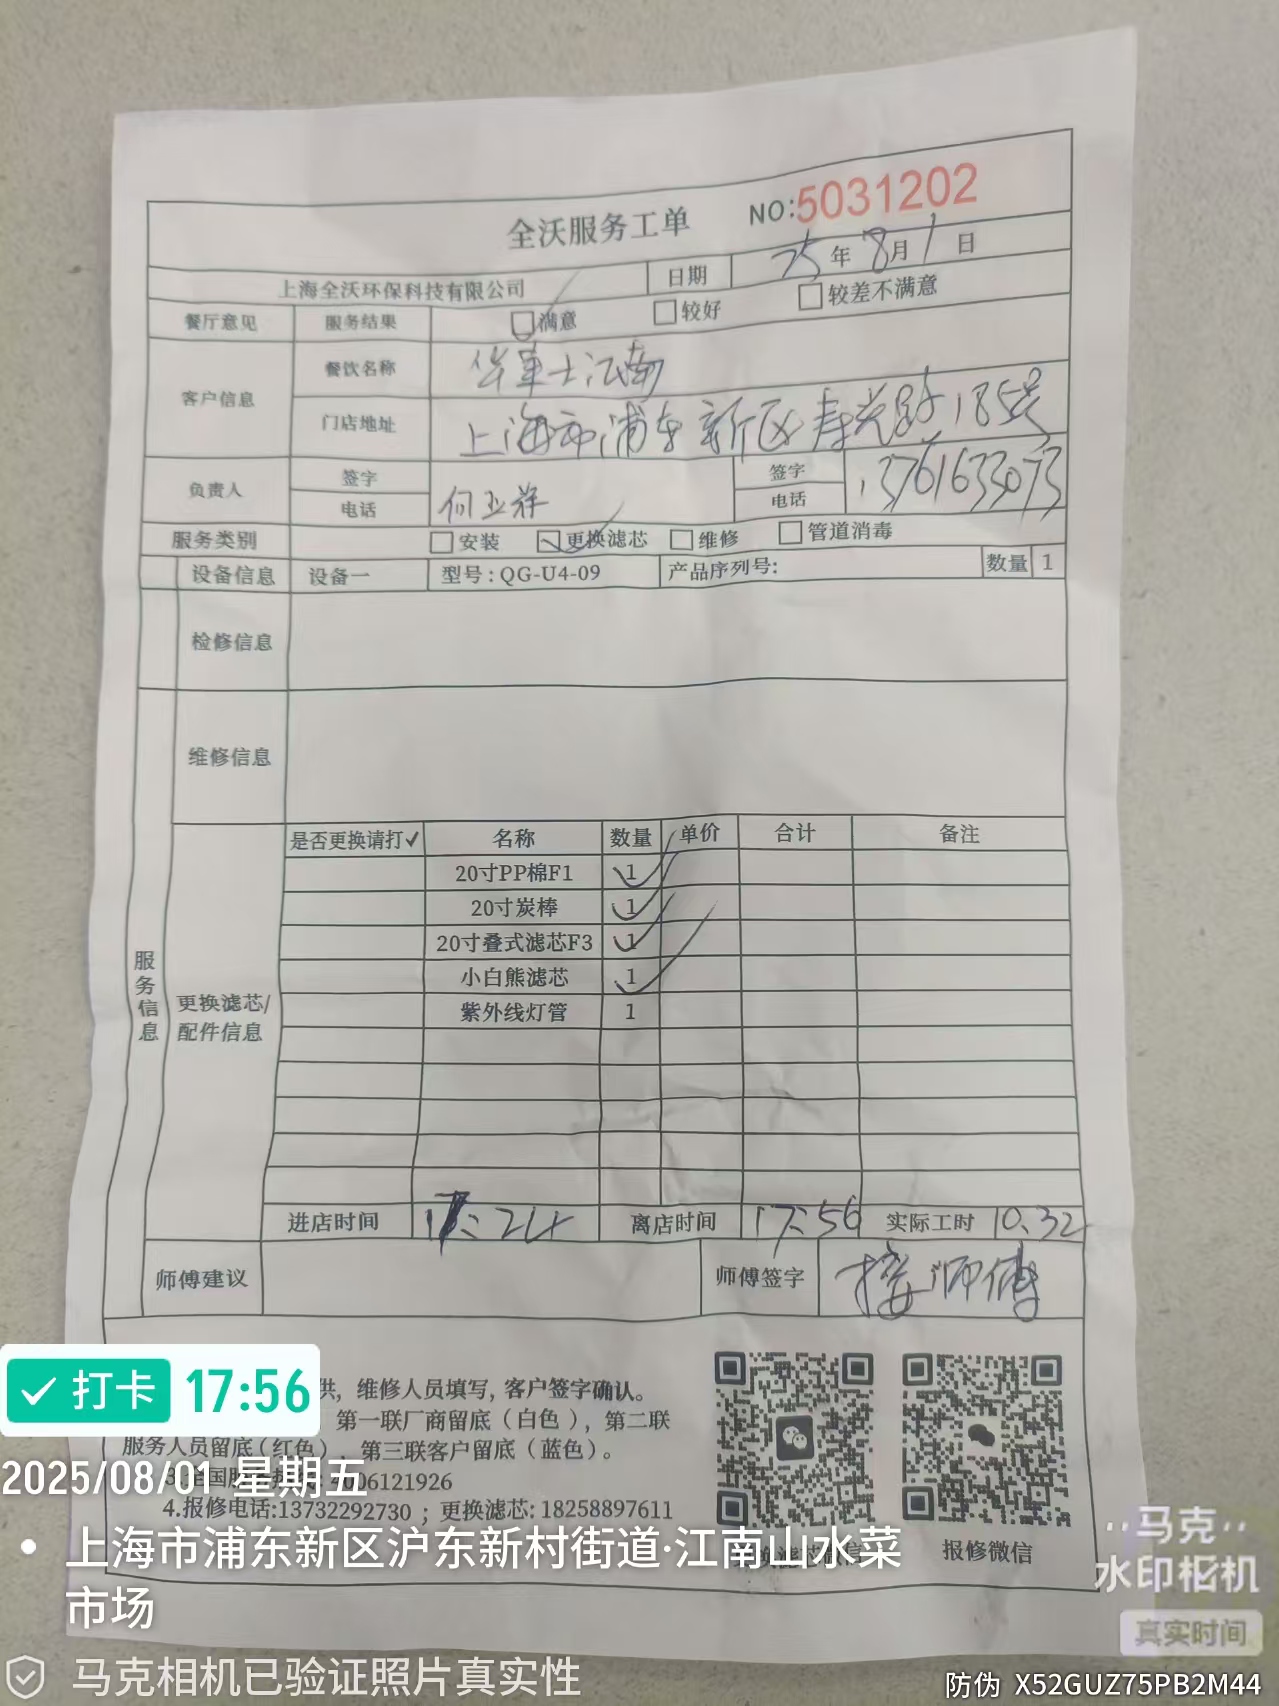 全沃服务工单 NO:5031202
上海全沃环保科技有限公司 日期 25年8月1日
餐厅意见 服务结果 满意 较好 较差不满意
客户信息 餐饮名称 华莱士江南
门店地址 上海市浦东新区寿光路185号
负责人 签字 签字
电话 何亚辉 电话 13761633073
服务类别 安装 更换滤芯 维修 管道消毒
设备信息 设备一 型号:QG-U4-09 产品序列号: 数量 1
检修信息
维修信息
服务信息
更换滤芯/
配件信息
是否更换请打✓ 名称 数量 单价 合计 备注
20寸PP棉F1 1
20寸炭棒 1
20寸叠式滤芯F3 1
小白熊滤芯 1
紫外线灯管 1
进店时间 17:24 离店时间 17:56 实际工时 10.32
师傅建议 师傅签字 师傅
供,维修人员填写,客户签字确认。
第一联厂商留底(白色),第二联
服务人员留底(红色),第三联客户留底(蓝色)。
4.报修电话:13732292730 ; 更换滤芯:18258897611
报修微信
打卡 17:56
2025/08/01 星期五
上海市浦东新区沪东新村街道·江南山水菜
市场
马克相机已验证照片真实性
马克
水印相机
真实时间
防伪 X52GUZ75PB2M44